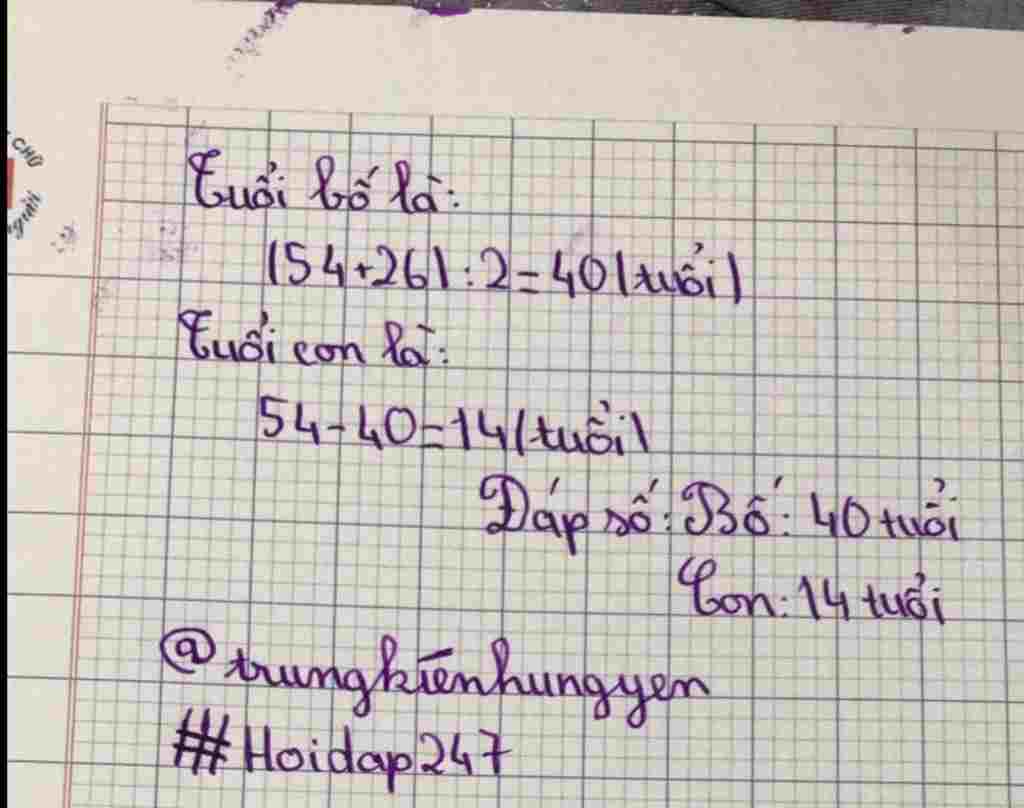 CHỮ
Tuổi bố là:
(54+26):2=40(tuổi)
Tuổi con là:
54-40=14(tuổi)
Đáp số: Bố: 40 tuổi
Con: 14 tuổi
@trungkiênhungyen
#Hoidap247